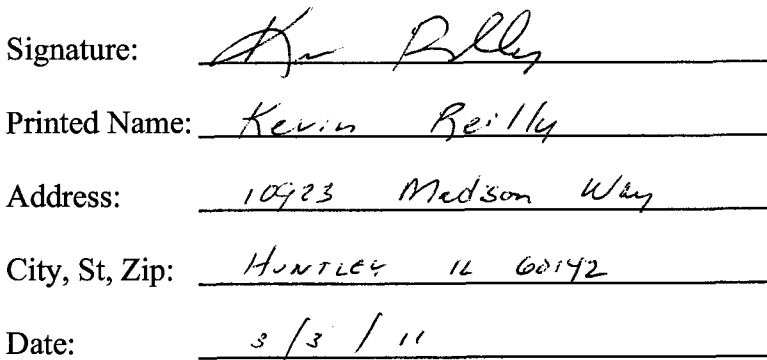 Signature: Kevin Reilly
Printed Name: Kevin Reilly
Address: 10923 Madison Way
City, St, Zip: HUNTLEY IL 60142
Date: 3/3/11